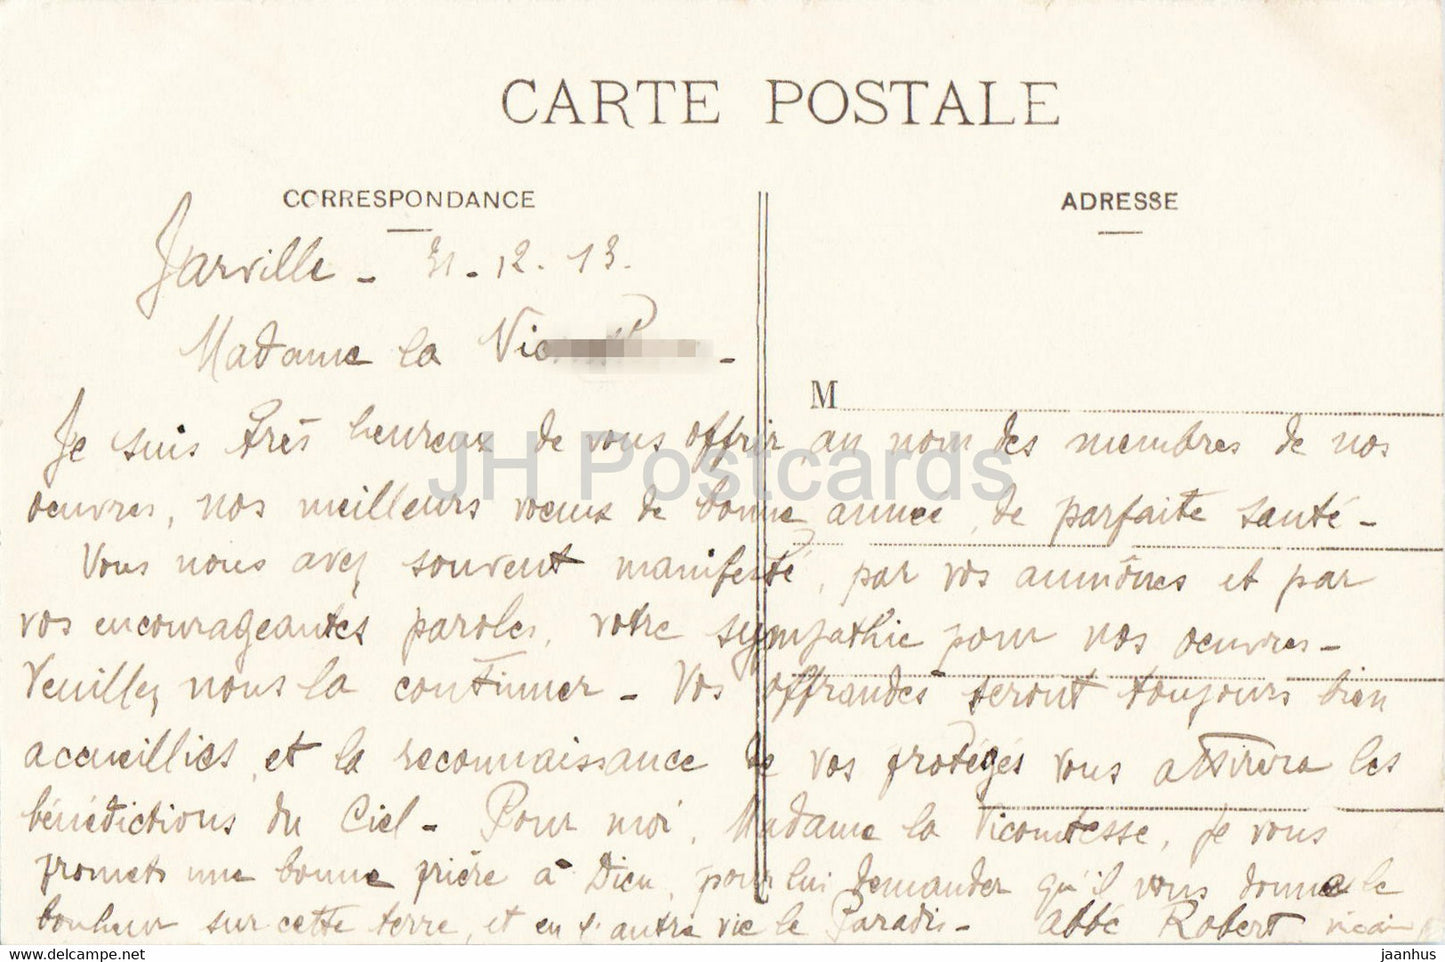 CARTE POSTALE
CORRESPONDANCE
ADRESSE
Jarville - 31-12. 13.
Madame la
M
Je suis très heureux de vous offrir, au nom des membres de nos
oeuvres, nos meilleurs voeux de bonne année, de parfaite santé -
Vous nous avez souvent manifesté, par vos aumônes et par
vos encourageantes paroles, votre sympathie pour nos oeuvres -
Veuillez nous la continuer - Vos offrandes seront toujours bien
accueillies, et la reconnaissance de vos protégés vous attirera les
bénédictions du Ciel - Pour moi, Madame la Vicomtesse, je vous
promets une bonne prière à Dieu, pour lui demander qu'il vous donne le
bonheur sur cette terre, et en l'autre vie le Paradis - abbé Robert
JH Postcards
www.delcampe.net
jaanhus